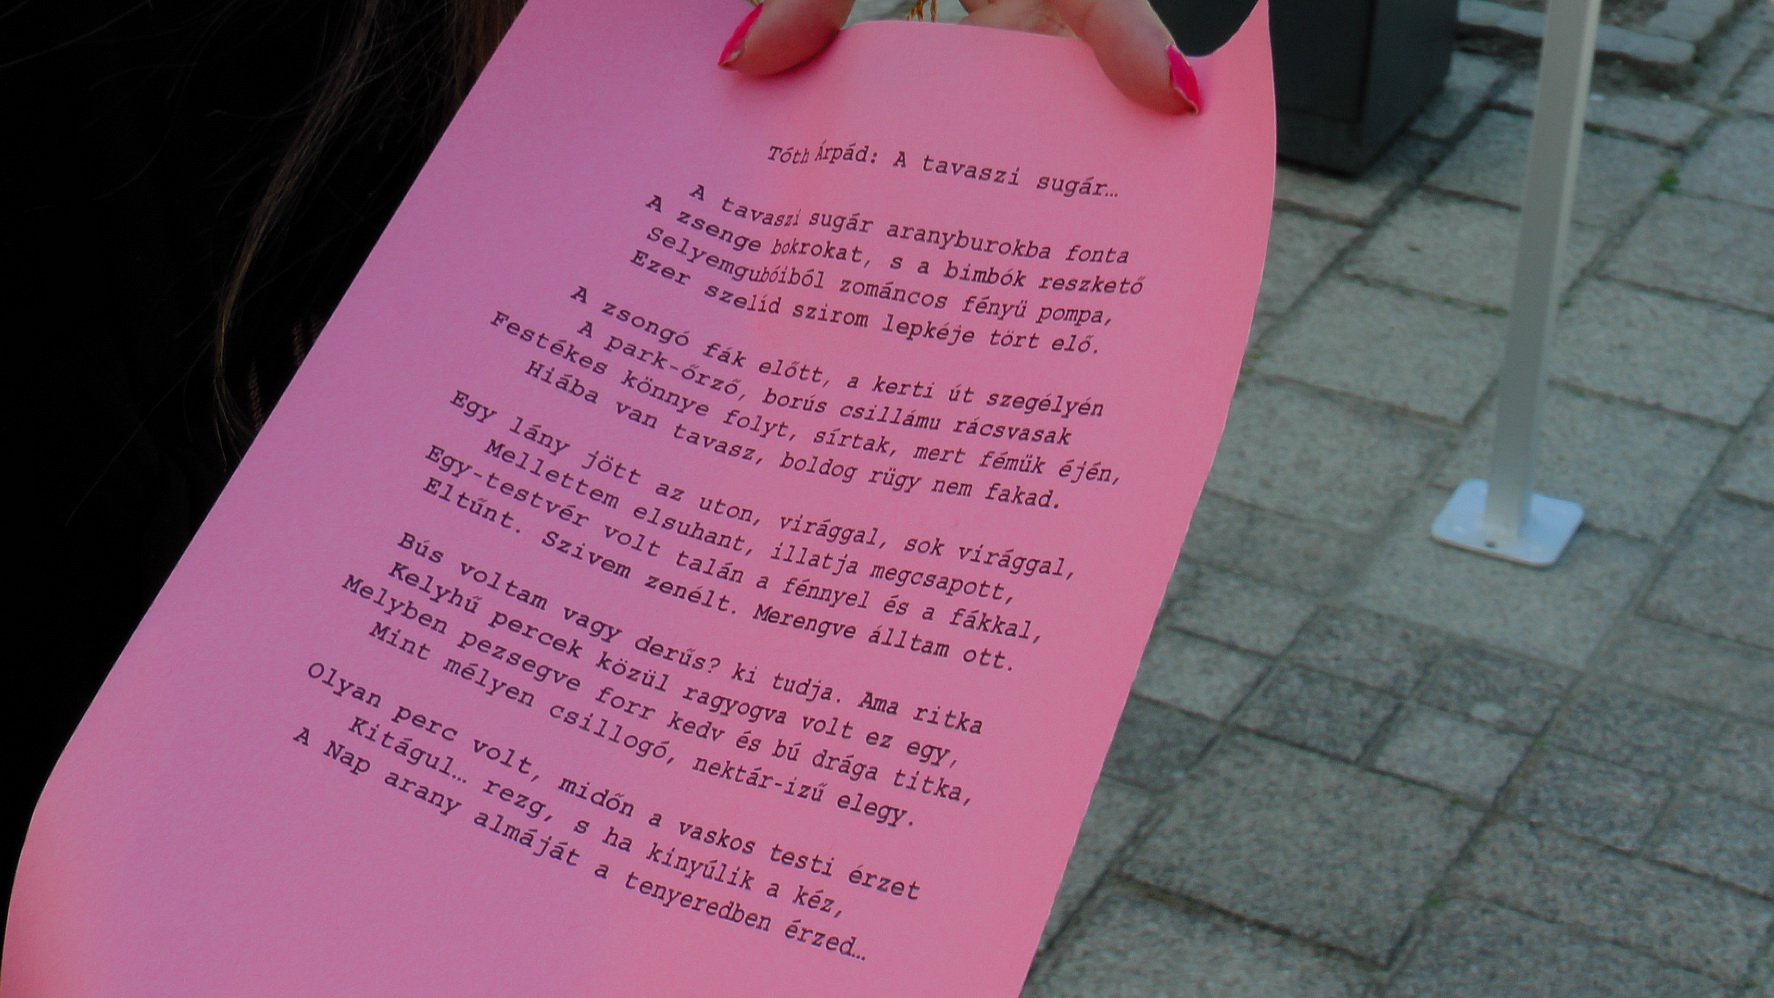 Tóth Árpád: A tavaszi sugár…
A tavaszi sugár aranyburokba fonta
A zsenge bokrokat, s a bimbók reszkető
Selyemgubóiból zománcos fényü pompa,
Ezer szelíd szirom lepkéje tört elő.
A zsongó fák előtt, a kerti út szegélyén
A park-őrző, borús csillámu rácsvasak
Festékes könnye folyt, sírtak, mert fémük éjén,
Hiába van tavasz, boldog rügy nem fakad.
Egy lány jött az uton, virággal, sok virággal,
Mellettem elsuhant, illatja megcsapott,
Egy-testvér volt talán a fénnyel és a fákkal,
Eltűnt. Szivem zenélt. Merengve álltam ott.
Bús voltam vagy derűs? ki tudja. Ama ritka
Kelyhű percek közül ragyogva volt ez egy,
Melyben pezsegve forr kedv és bú drága titka,
Mint mélyen csillogó, nektár-izű elegy.
Olyan perc volt, midőn a vaskos testi érzet
Kitágul… rezg, s ha kinyúlik a kéz,
A Nap arany almáját a tenyeredben érzed…